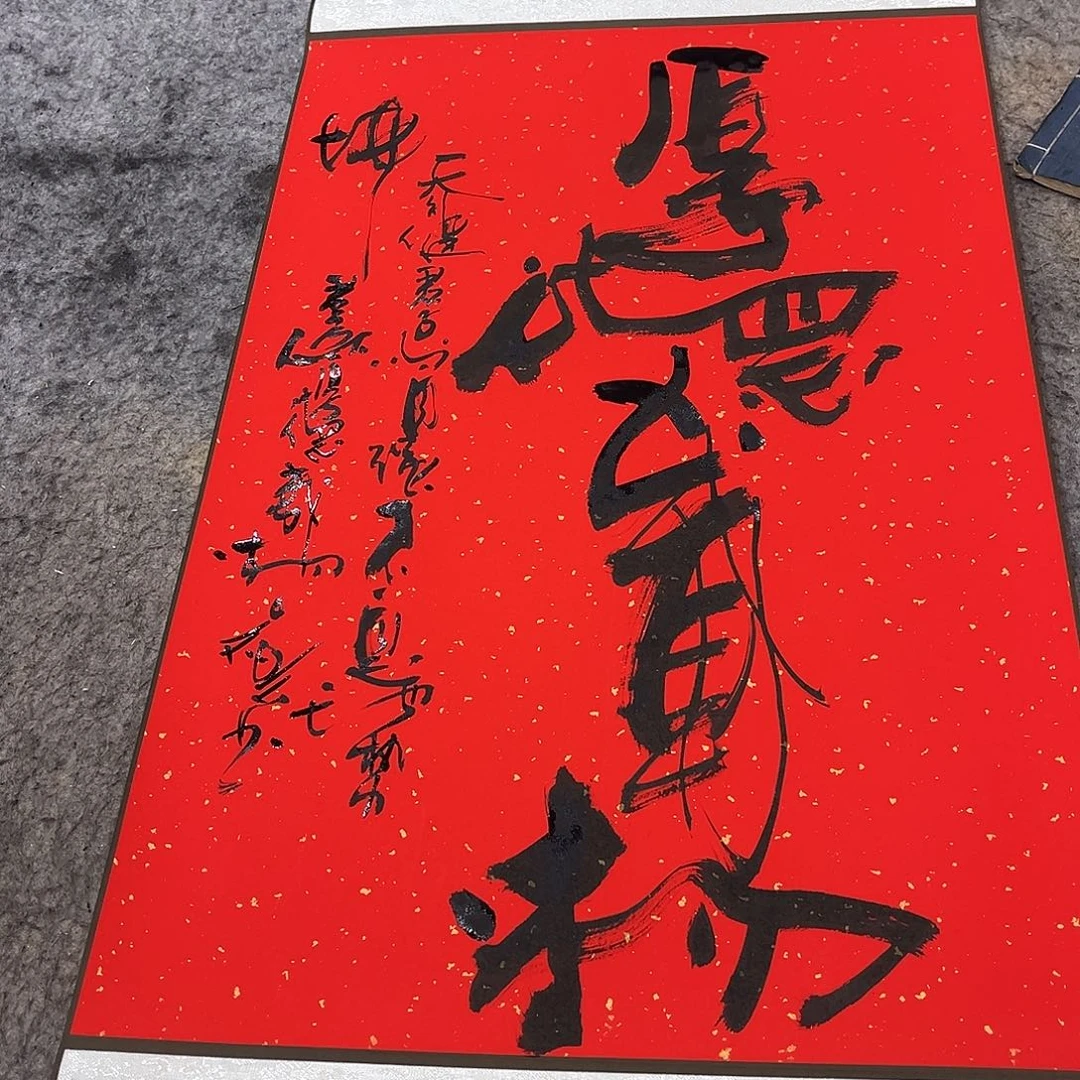 厚德載物
天行健君子以自強不息地勢
坤君子以厚德載物